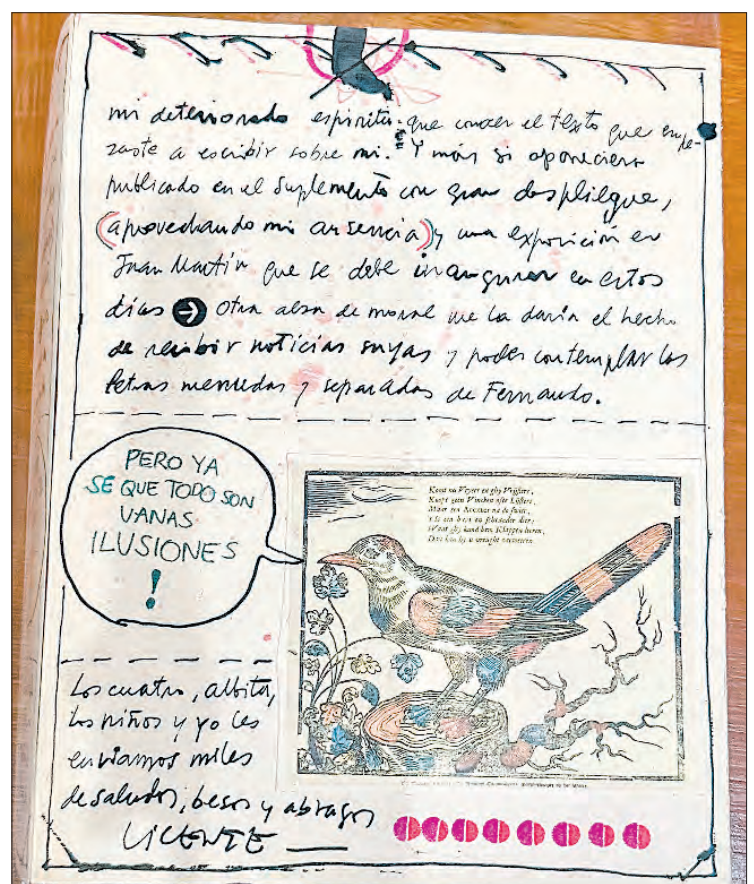 mi deteriorado espíritu que conocer el texto que empe-
zaste a escribir sobre mi. Y más si apareciera
publicado en el Suplemento con gran despliegue,
(aprovechando mi ausencia) y una exposición en
Juan Martín que se debe inaugurar en estos
días → Otra alza de moral me la daría el hecho
de recibir noticias suyas y poder contemplar las
letras menudas y separadas de Fernando.
PERO YA
SE QUE TODO SON
VANAS
ILUSIONES
!
Koopt geen Vincken ofte Lijsters,
Los cuatro, albita,
los niños y yo les
enviamos miles
de saludos, besos y abrazos
VICENTE